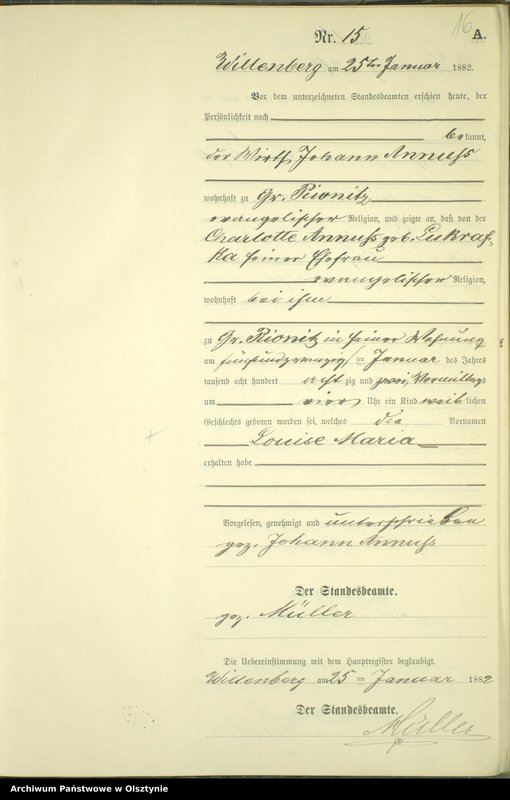 16
Nr. 15 A.
Willenberg am 25ten Januar 1882.
Vor dem unterzeichneten Standesbeamten erschien heute, der
Persönlichkeit nach
bekannt,
der Wirth Johann Annuss
wohnhaft zu Gr. Piwnitz
evangelischer Religion, und zeigte an, daß von der
Charlotte Annuss geb. Sukras-
ka seiner Ehefrau
evangelischer Religion,
wohnhaft bei ihm
zu Gr. Piwnitz in seiner Wohnung
am fünfundzwanzigsten Januar des Jahres
tausend acht hundert achtzig und zwei, Vormittags
um vier Uhr ein Kind weiblichen
Geschlechts geboren worden sei, welches die Vornamen
Louise Maria
erhalten habe
Vorgelesen, genehmigt und unterschrieben
gez. Johann Annuss
Der Standesbeamte.
gez. Müller
Die Uebereinstimmung mit dem Hauptregister beglaubigt.
Willenberg am 25 ten Januar 1882
Der Standesbeamte.
Müller
Archiwum Państwowe w Olsztynie